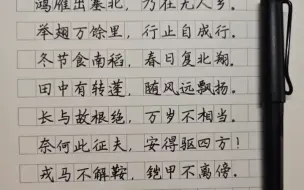 鸿雁出塞北，乃在无人乡。
举翅万馀里，行止自成行。
冬节食南稻，春日复北翔。
田中有转蓬，随风远飘扬。
长与故根绝，万岁不相当。
奈何此征夫，安得驱四方！
戎马不解鞍，铠甲不离傍。